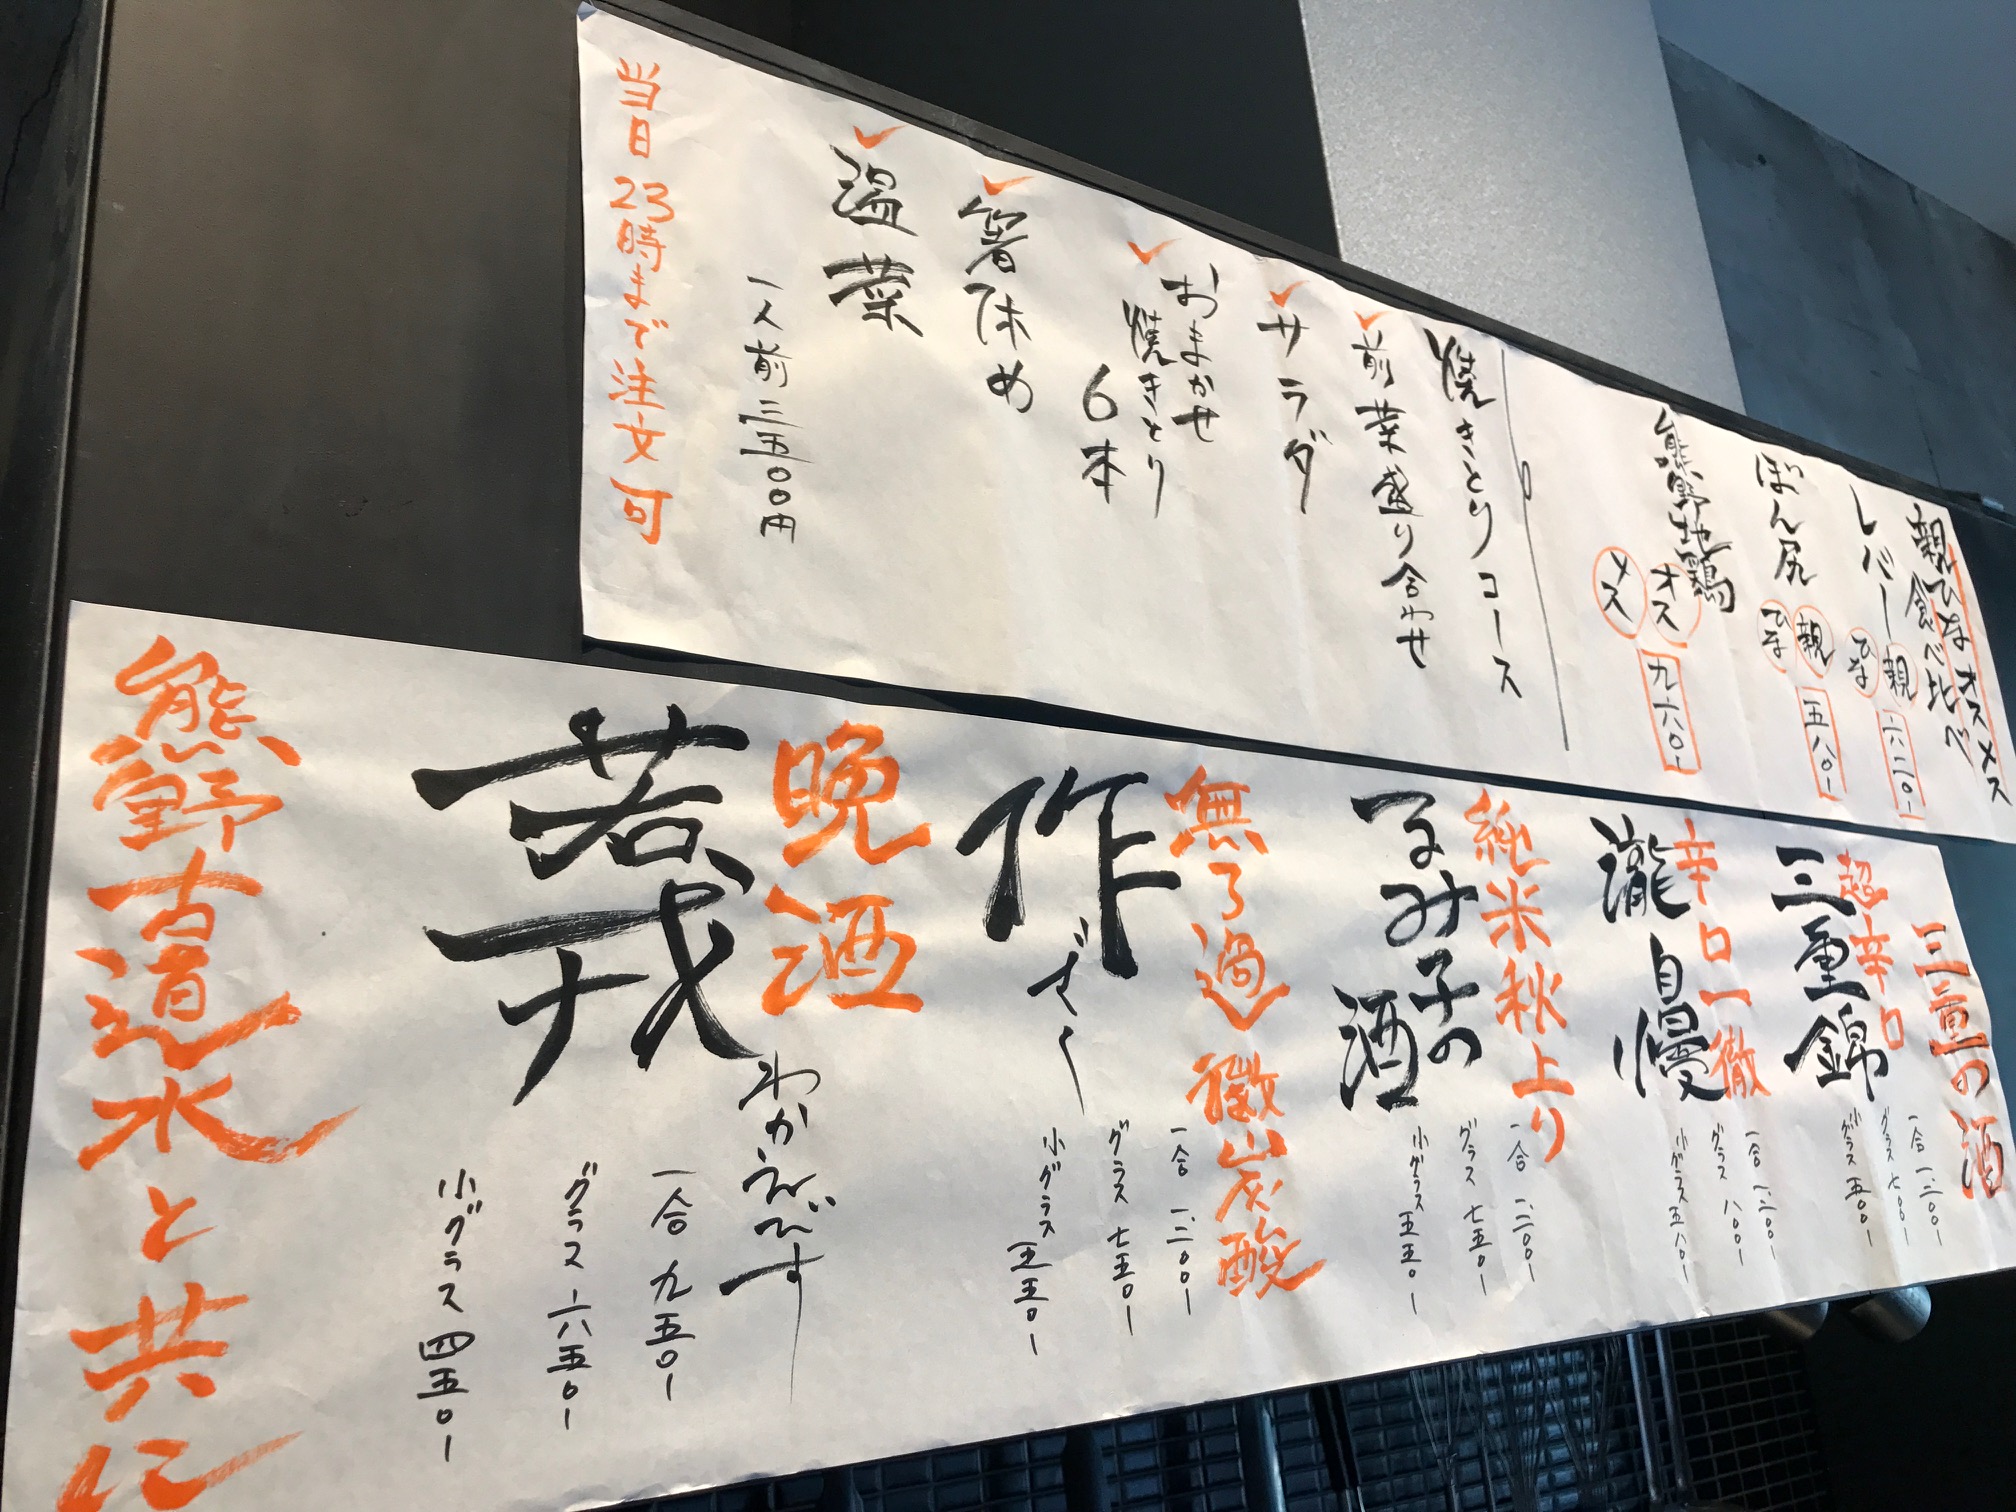 親ひなオスメス
食べ比べ
レバー
親
ひな
六二〇-
ぼん尻
親
ひな
五八〇-
熊野地鶏
オス
メス
九六〇-
焼きとりコース
前菜盛り合わせ
サラダ
おまかせ
焼きとり
6本
箸休め
温菜
一人前三五〇〇円
当日23時まで注文可
三重の酒
超辛口
三重錦
一合
グラス七〇〇-
小グラス五〇〇-
辛口一徹
瀧自慢
一合
グラス八〇〇-
小グラス五八〇-
純米秋上り
るみ子の
酒
一合
グラス七五〇-
小グラス五五〇-
無ろ過微炭酸
作
ざく
一合
グラス七五〇-
小グラス五五〇-
晩酒
若戎
わかえびす
一合九五〇-
グラス六五〇-
小グラス四五〇-
熊野古道水と共に